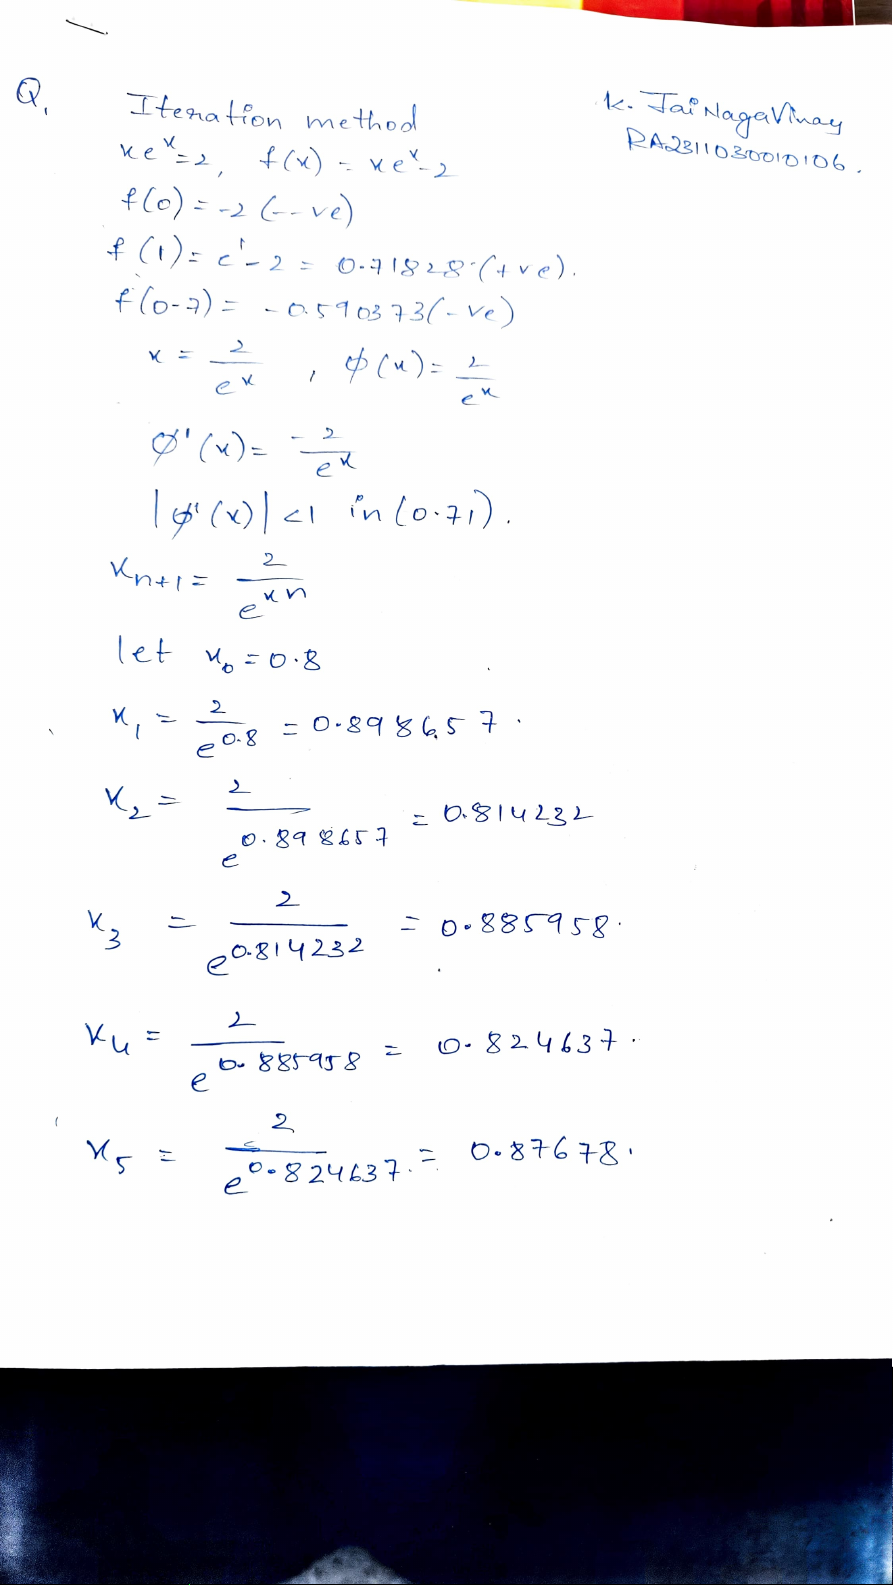 Q.
Iteration method
K. Jai Naga Vinay
RA2311030010106.
xe^x=2, f(x) = xe^x-2
f(0) = -2 (--ve)
f(1) = e^1-2 = 0.71828 (+ve).
f(0-7) = -0.590373(-ve)
x = 2/e^x , ϕ(x) = 2/e^x
ϕ'(x) = -2/e^x
|ϕ'(x)| <1 in (0.71).
x_n+1 = 2/e^xn
let x_0 = 0.8
x_1 = 2/e^0.8 = 0.898657.
x_2 = 2/e^0.898657 = 0.814232
x_3 = 2/e^0.814232 = 0.885958.
x_4 = 2/e^0.885958 = 0.824637.
x_5 = 2/e^0.824637. = 0.87678.